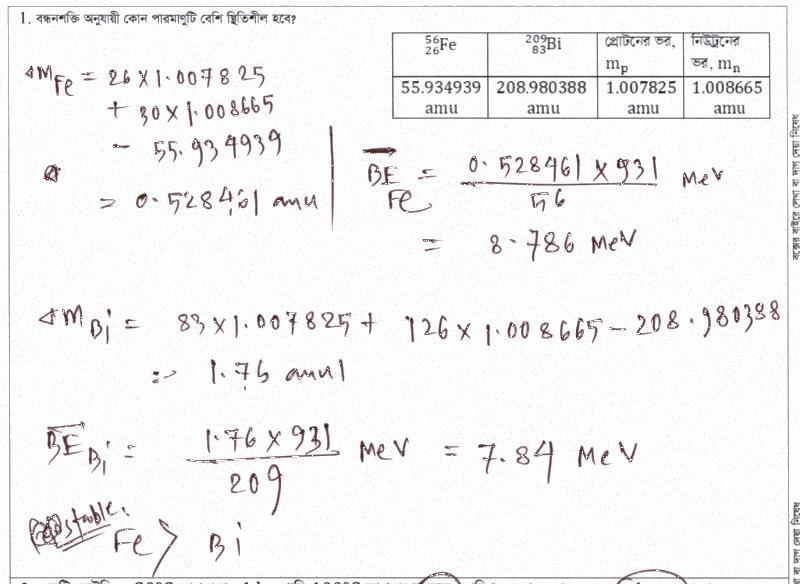 1. বন্ধনশক্তি অনুযায়ী কোন পরমাণুটি বেশি স্থিতিশীল হবে?
⁵⁶₂₆Fe ²⁰⁹₈₃Bi প্রোটনের ভর, mₚ নিউট্রনের ভর, mₙ
55.934939 amu 208.980388 amu 1.007825 amu 1.008665 amu
ΔmFe = 26 × 1.007825
+ 30 × 1.008665
- 55.934939
= 0.528461 amu
BE Fe = 0.528461 × 931 / 56 MeV
= 8.786 MeV
ΔmBi = 83 × 1.007825 + 126 × 1.008665 - 208.980388
= 1.76 amu
BE Bi = 1.76 × 931 / 209 MeV = 7.84 MeV
stable:
Fe > Bi
বক্সের বাইরে লেখা বা দাগ দেয়া নিষেধ
বা দাগ দেয়া নিষেধ